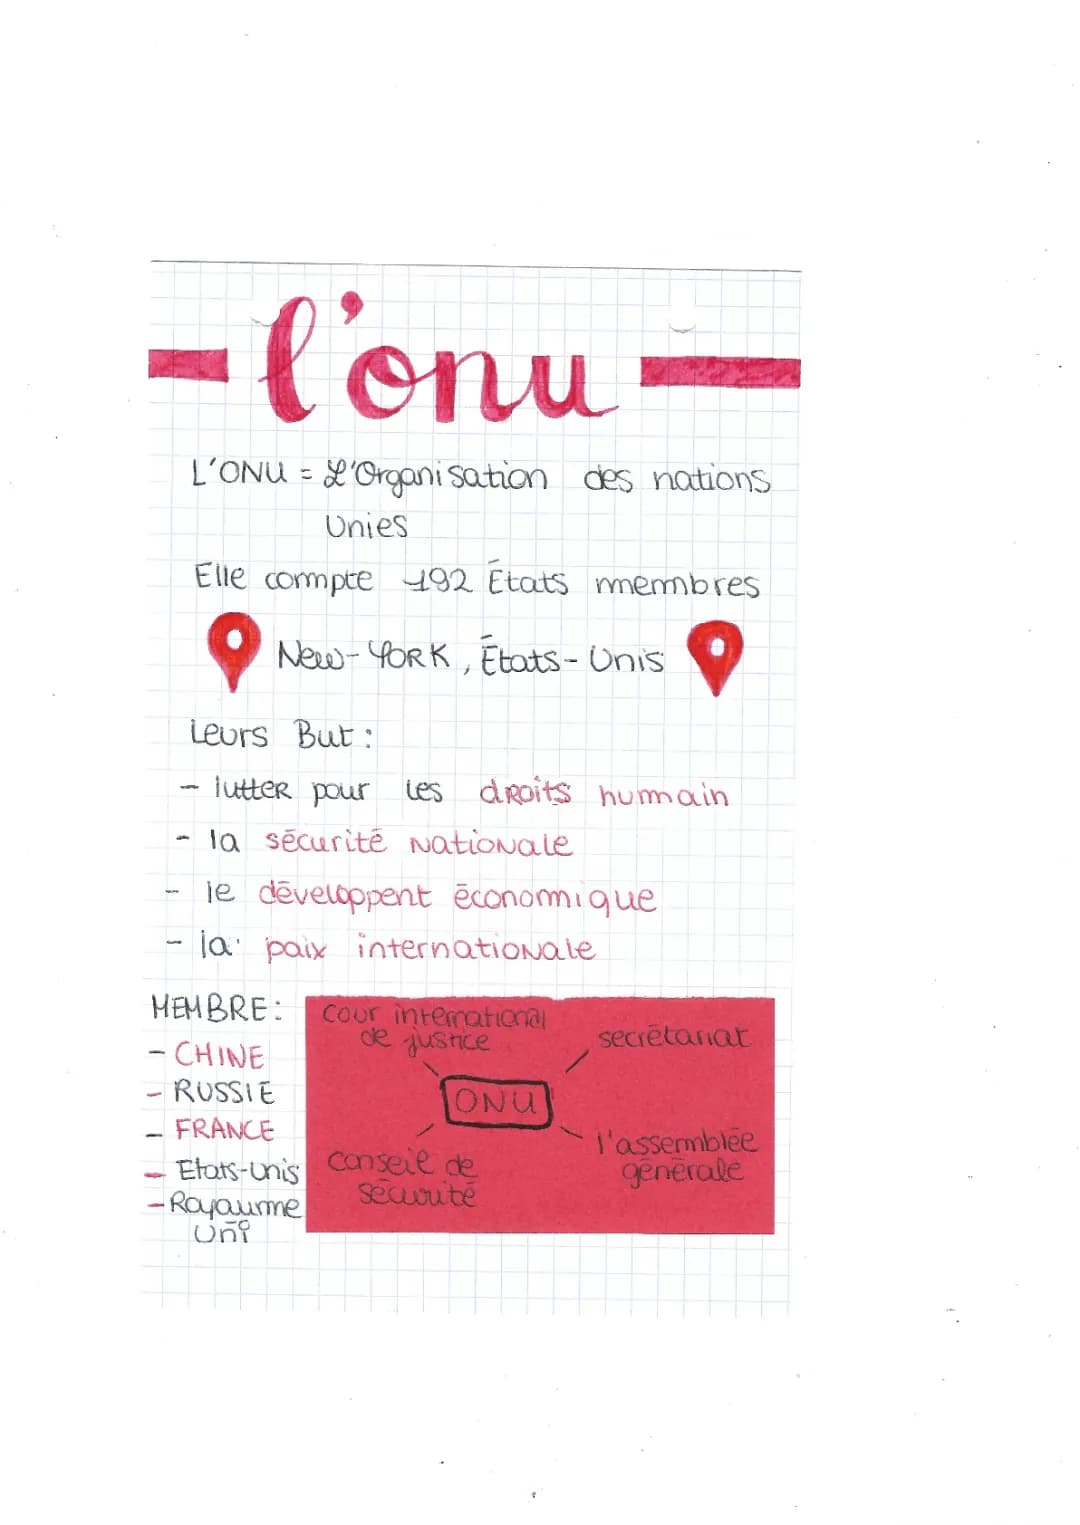 l'onu
L'ONU = L'Organisation des nations
Unies
Elle compte 192 États membres
New-YORK, États-Unis
Leurs But :
- lutter pour les droits humain
- la sécurité nationale
- le développent économique
- la paix internationale
MEMBRE :
- CHINE
- RUSSIE
- FRANCE
- Etats-Unis
- Royaume
Uni
cour international
de justice
secrétariat
ONU
conseil de
sécurité
l'assemblée
générale